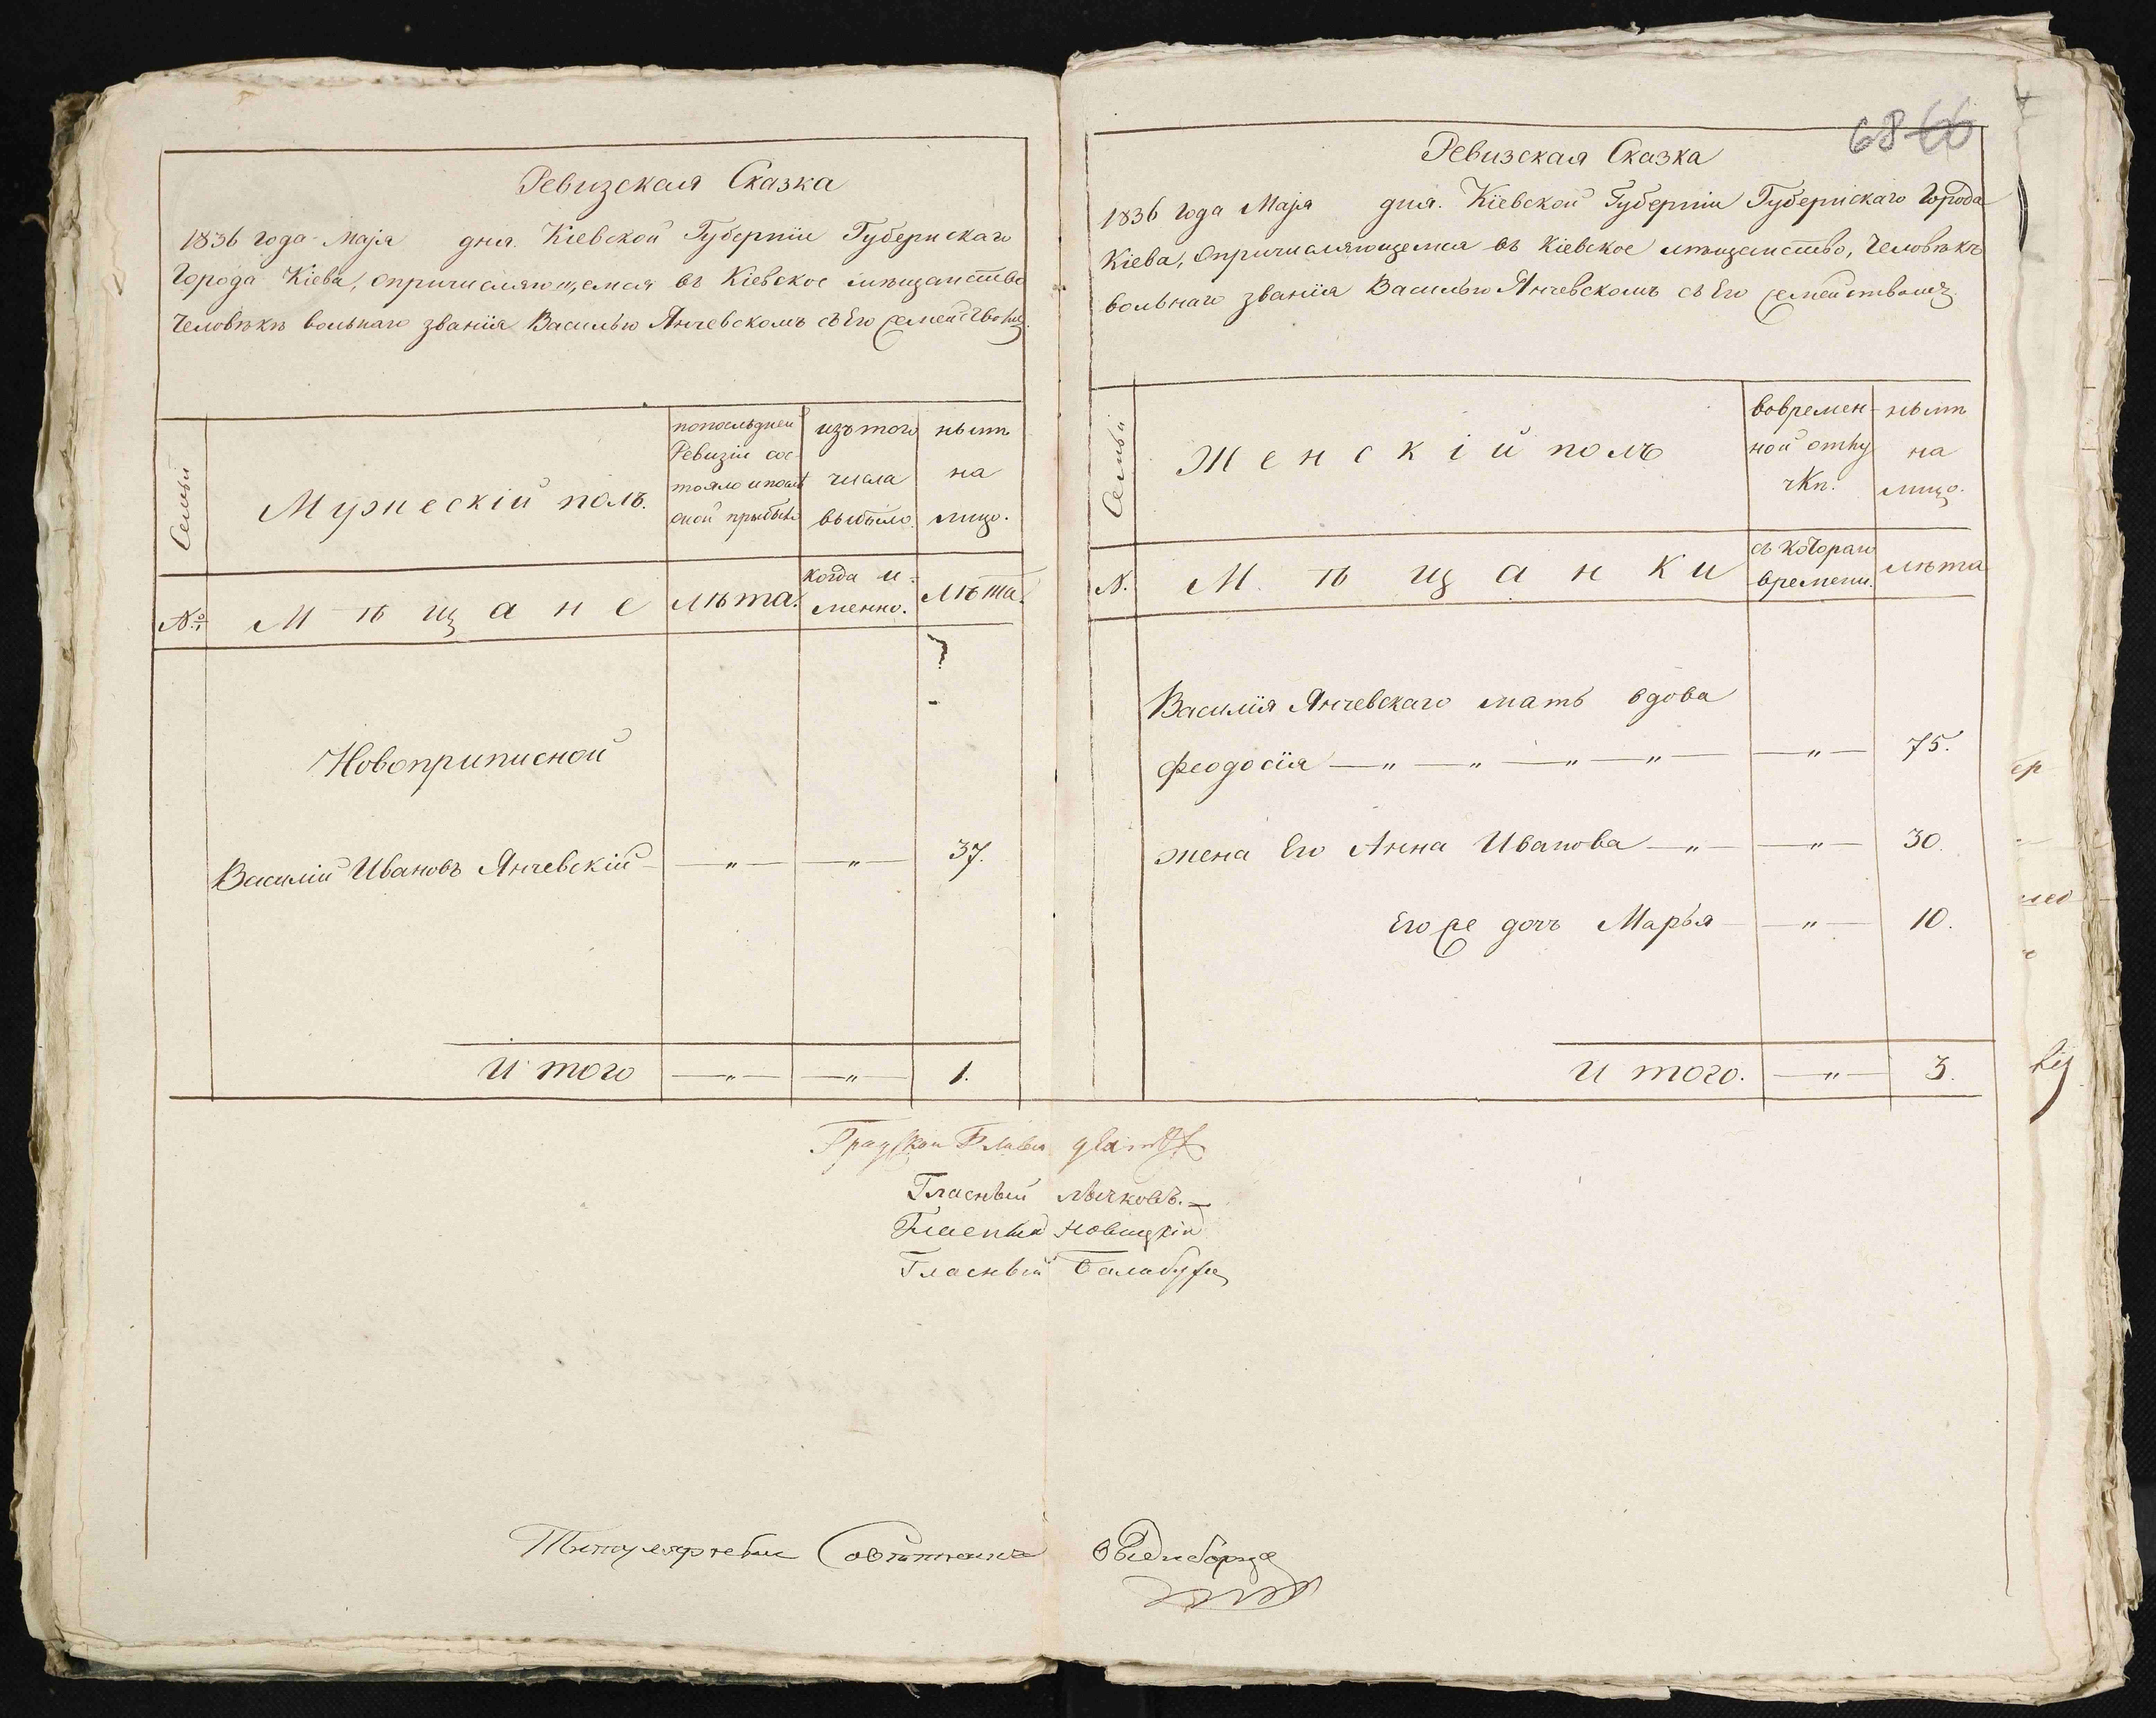 Ревизская Сказка
1836 года Маја дня. Кіевской Губерніи Губернскаго
Города Кіева, опричисляющемся въ Кіевское мѣщанство
Человѣкѣ вольнаго званія Василью Янчевскомъ съ Его семействомъ.
Семьи
Мужескій полъ.
попослѣдней
Ревизіи сос
тояло и послѣ
оной прибыло
изътого
числа
выбыло.
нынѣ
на
лицо.
№
Мѣщане
лѣта.
когда и
менно.
лѣта.
Новоприписной
Василій Ивановъ Янчевскій — „ — — „ — 37.
Итого — „ — — „ — 1.
68 66
Ревизская Сказка
1836 года Маја дня. Кіевской Губерніи Губернскаго Города
Кіева, опричисляющемся въ Кіевское мѣщанство, Человѣкѣ
вольнаго званія Василью Янчевскомъ съ Его семействомъ.
Семьи
Женскій полъ
вовремен-
ной отлу
чкѣ.
нынѣ
на
лицо.
N.
Мѣщанки
съ котораго
времени.
лѣта
Василія Янчевскаго мать вдова
Феодосія — „ — „ — „ — „ — — „ — 75.
жена Его Анна Иванова — „ — — „ — 30.
Егоже дочь Марья — — „ — 10.
Итого. — „ — 3.
Градской Глава
Гласный Лычковъ.
Гласный Новицкій
Гласный Балабуха
Титулярный Совѣтникъ